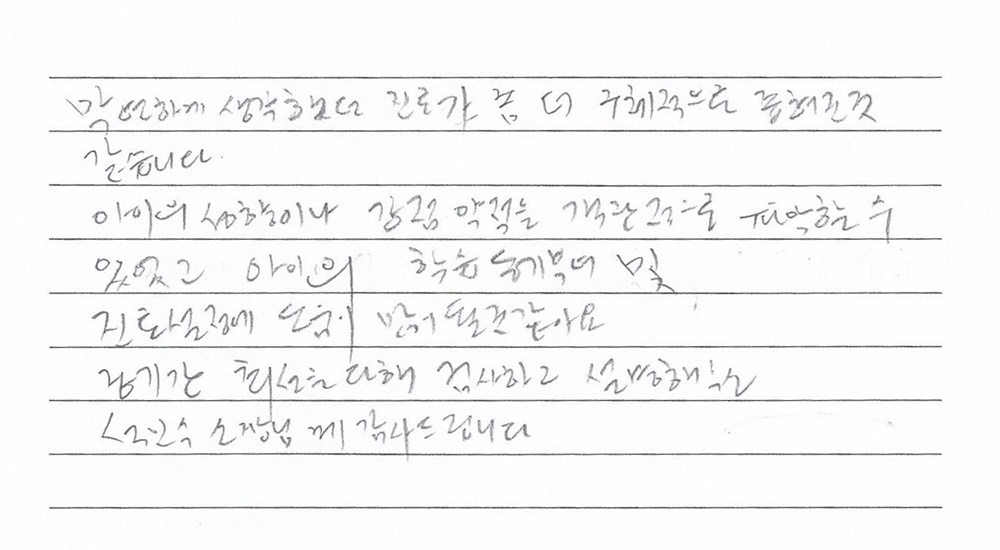 막연하게 생각했던 진로가 좀 더 구체적으로 좁혀진것
같습니다.
아이의 성향이나 강점 약점을 객관적으로 파악할 수
있었고 아이의 학습 동기부여 및
진로설정에 도움이 많이 될것같아요
장기간 최선을 다해 검사하고 설명해주신
소장님께 감사드립니다